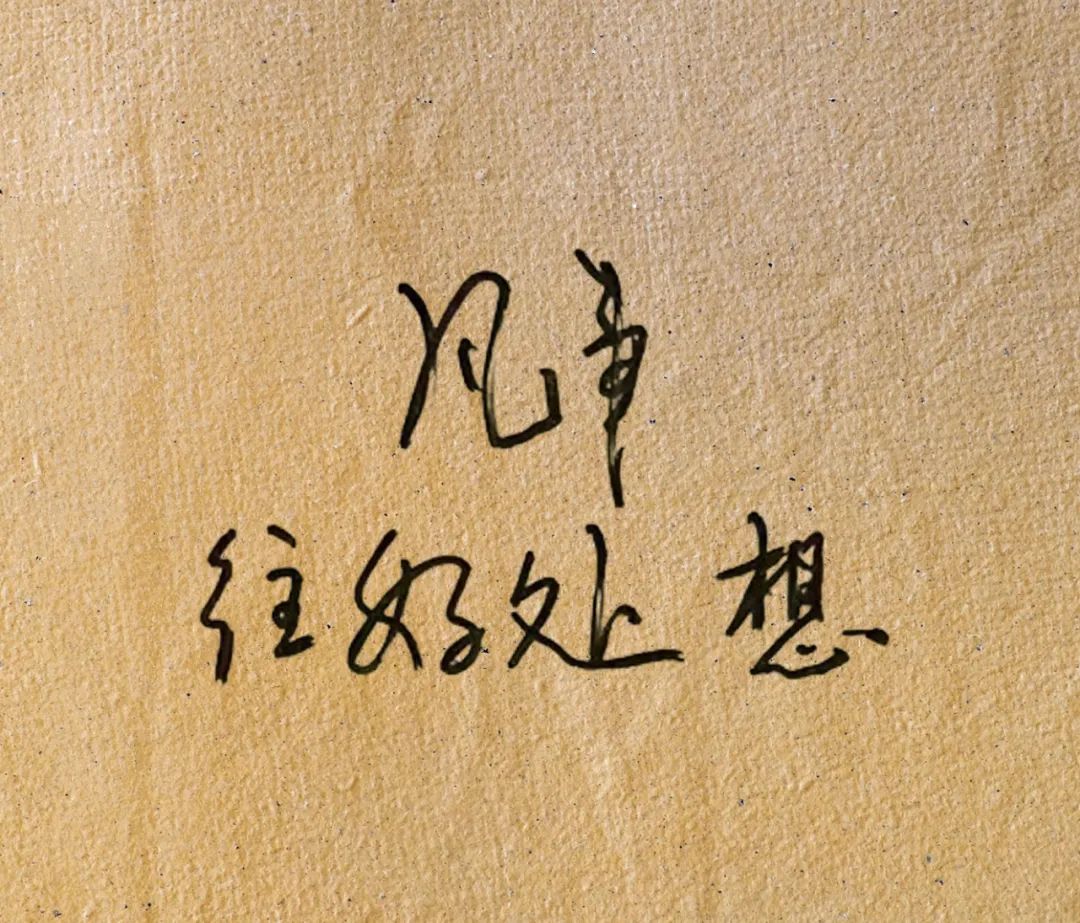 凡事
往好处想